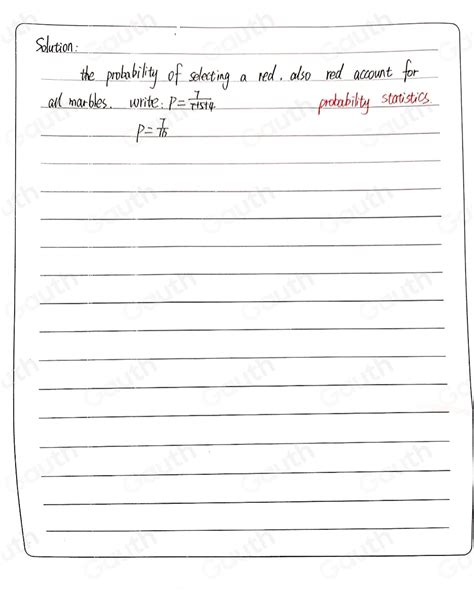 Solution:
the probability of selecting a red. also red account for
all marbles. write: P = 7/7+5+4 probability statistics
P =